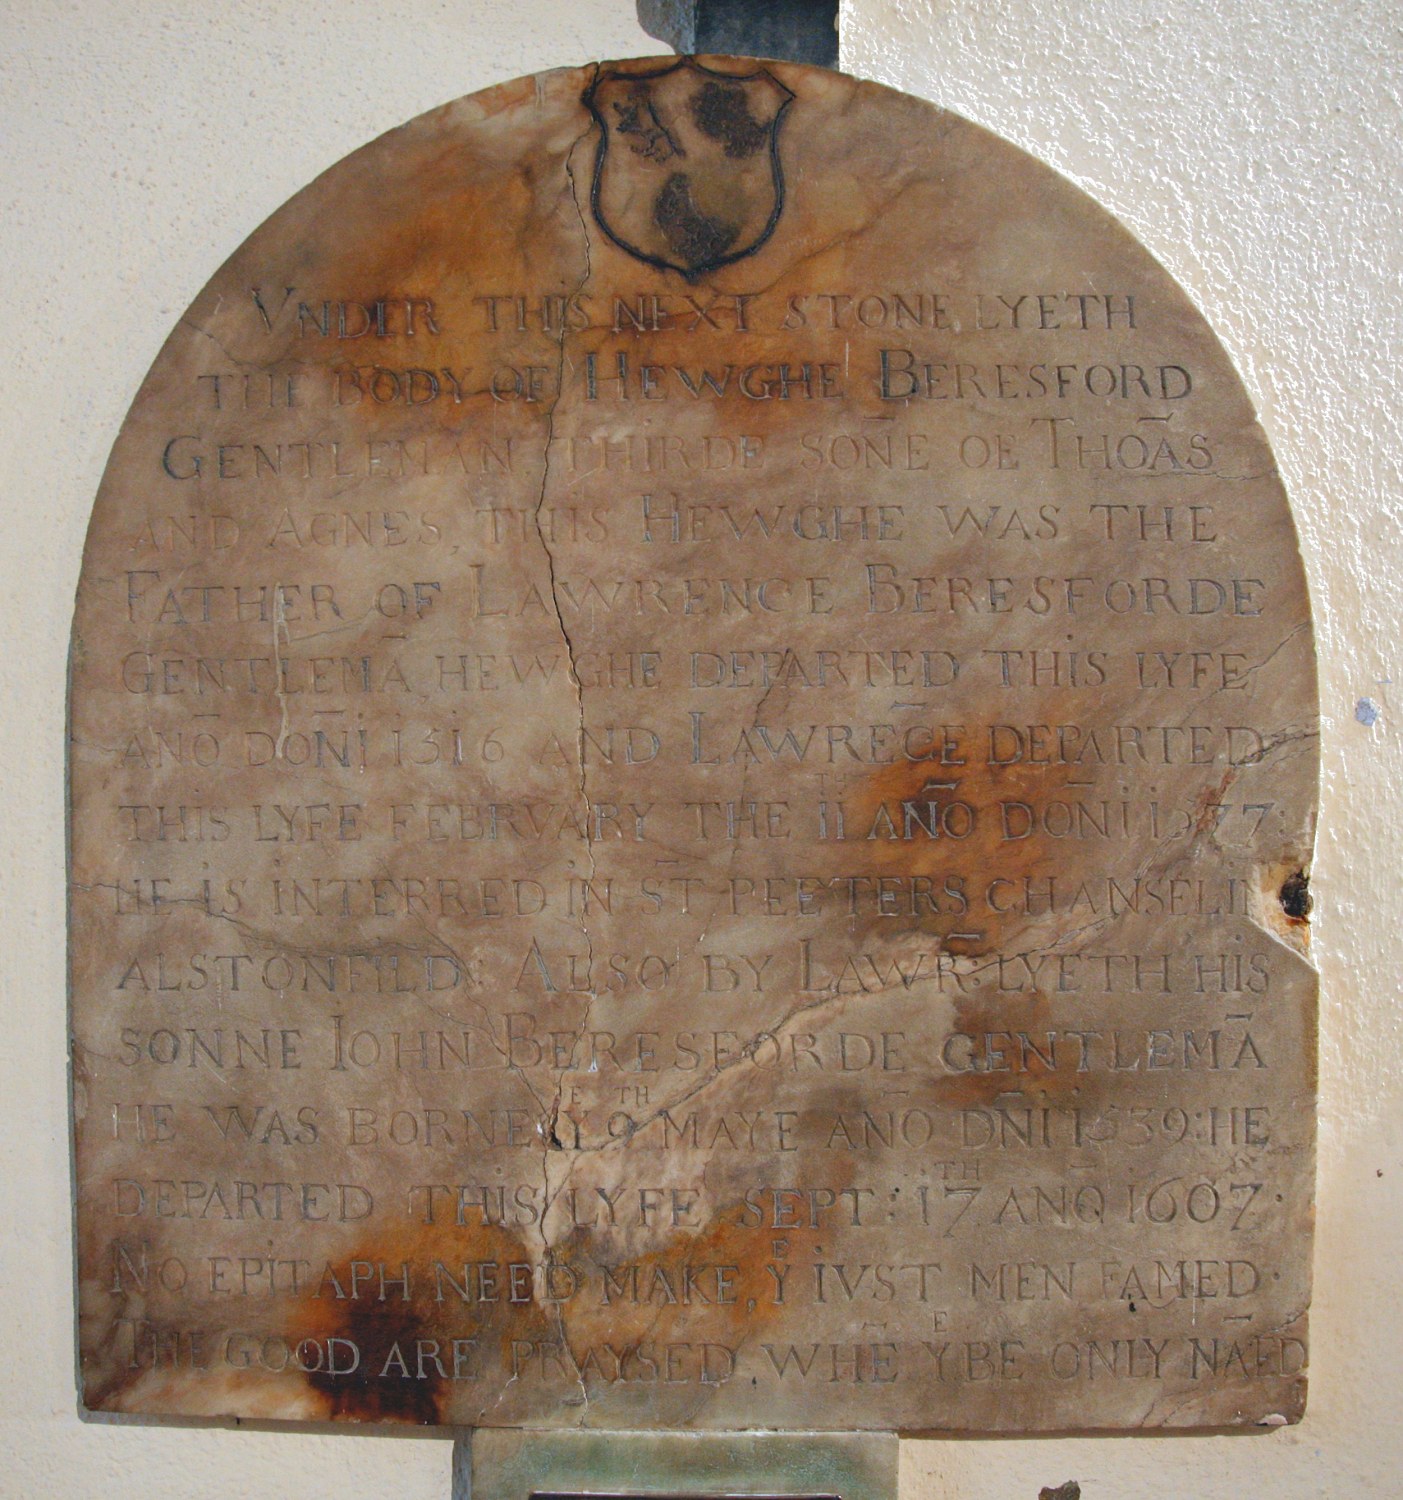 VNDER THIS NEXT STONE LYETH
THE BODY OF HEWGHE BERESFORD
GENTLEMAN THIRDE SOÑE OF THOĀS
AND AGNES, THIS HEWGHE WAS THE
FATHER OF LAWRENCE BERESFORDE
GENTLEMĀ, HEWGHE DEPARTED THIS LYFE
AÑO DOÑI 1516 AND LAWRĒCE DEPARTED
THIS LYFE FEBRVARY THE 11TH AÑO DOÑI 1577:
HE IS INTERRED IN ST PEETERS CHANSEL IN
ALSTONFILD: ALSO BY LAWR̄: LYETH HIS
SONNE IOHN BERESFORDE GENTLEMĀ
HE WAS BORNE YE 9TH MAYE AÑO DÑI 1539: HE
DEPARTED THIS LYFE SEPT: 17TH AÑO 1607.
NO EPITAPH NEED MAKE, YE IVST MEN FAMED.
THE GOOD ARE PRAYSED, WHĒ YE BE ONLY NĀED